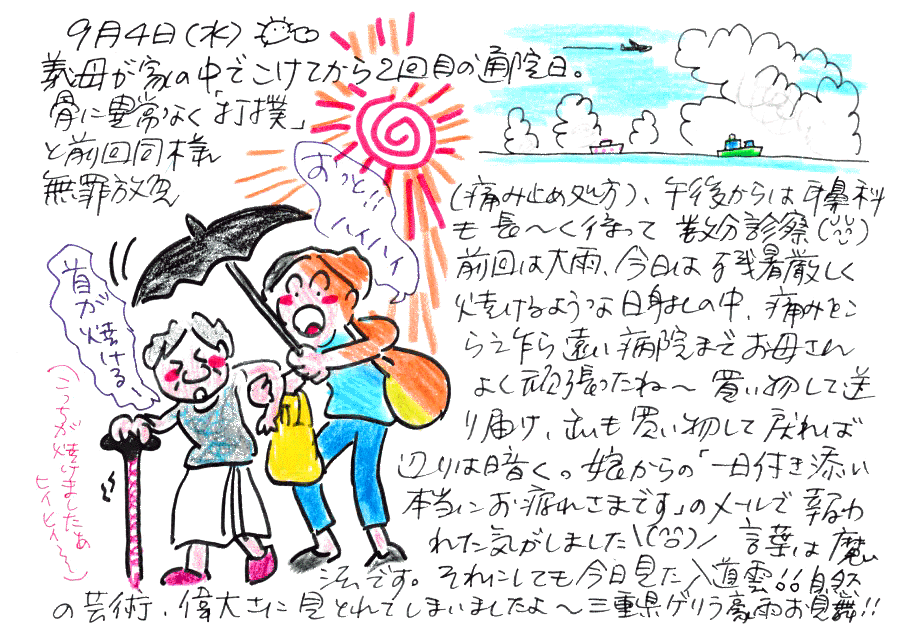 9月4日(水)
義母が家の中でこけてから2回目の通院日。
骨に異常なく「打撲」
と前回同様
無罪放免
(痛み止め処方)、午後からは耳鼻科
も長〜く待って 数分診察(^^)
前回は大雨、今日は残暑厳しく
焼けるような日射しの中、痛みをこ
らえ乍ら遠い病院までお母さん
よく頑張ったね〜 買い物して送
り届け、私も買い物して戻れば
辺りは暗く。娘からの「一日付き添い
本当にお疲れさまです」のメールで報わ
れた気がしました\(^^)/ 言葉は魔
法です。それにしても今日見た入道雲!!自然
の芸術、偉大さに見とれてしまいましたよ〜三重県ゲリラ豪雨お見舞!!
おっと!!
ハイハイ
首が
焼ける
(こっちが焼けましたぁ
ヒイヒイ〜〜)